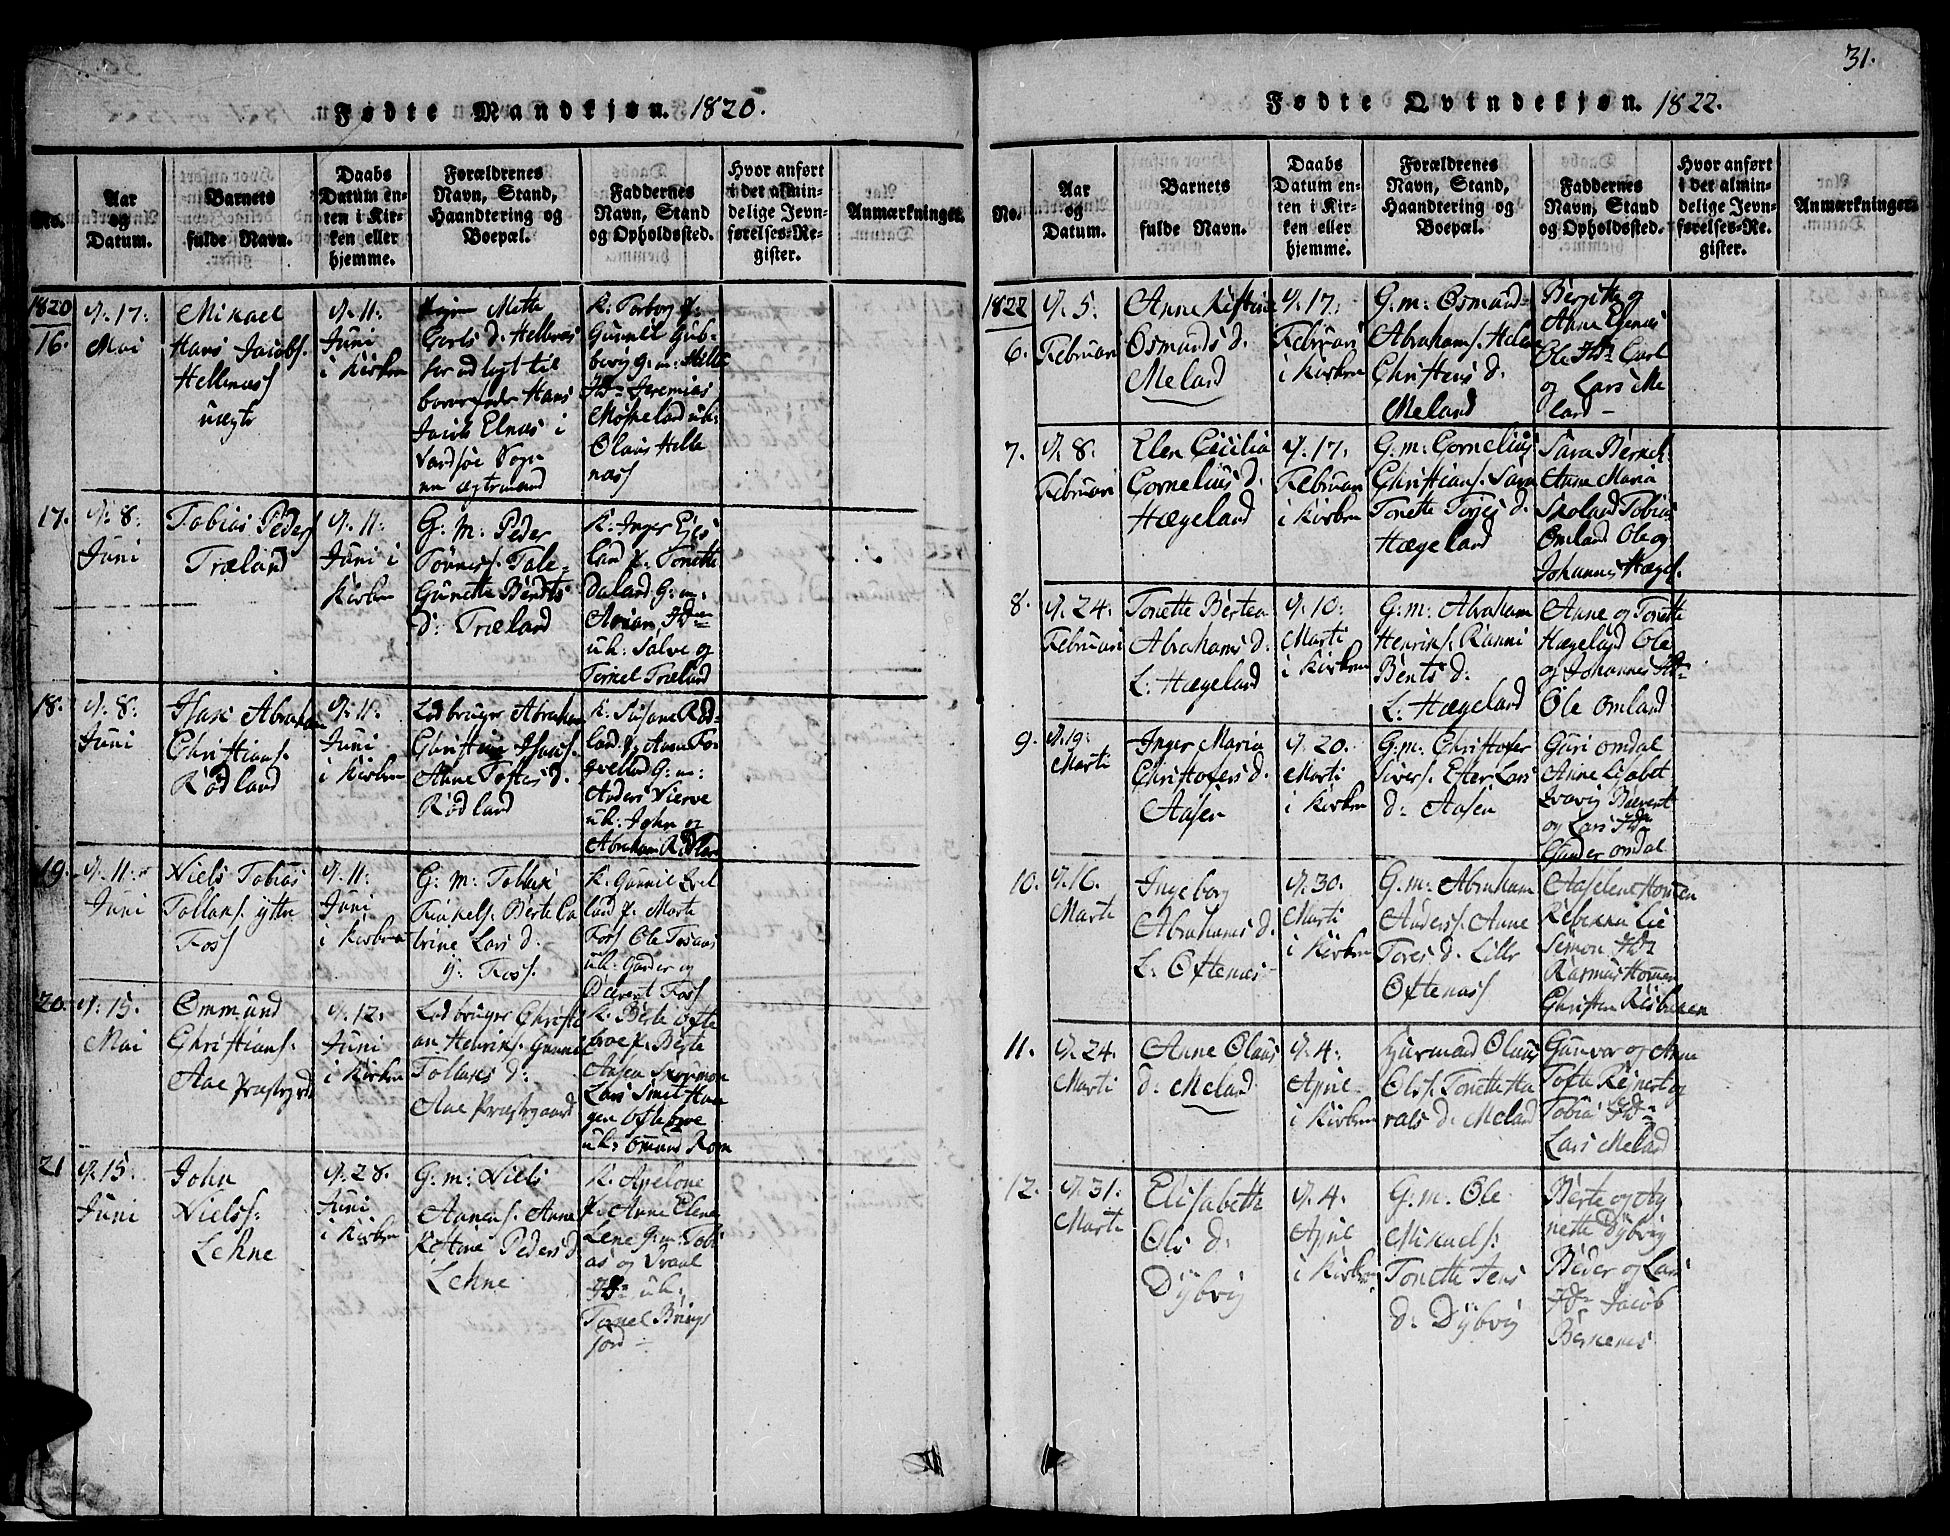 31.
Fødte Mandkjøn. 1820.
No.
Aar
og
Datum.
Barnets
fulde Navn.
Daabs
Datum en-
ten i Kir-
ken eller
hjemme.
Forældrenes
Navn, Stand,
Haandtering og
Boepæl.
Faddernes
Navn, Stand
og Opholdssted.
Hvor anført
i det almin-
delige Jevn-
førelses-Re-
gister.
Anmærkninger.
1820
16.
d. 17:
Mai
Mikael
Hans Jacobs.
Hellenæss
uægte
d. 11:
Juni
i Kirken
Mette
Carls d. Hellenes
har udlagt til
barnefader Hans
Jacob Elnæs i
Sogn
K: Torborg
Gunnil Gub-
berg g: m:
Jeremias
Møskeland u.k:
Olaus Helle
næss
17.
d. 8:
Juni
Tobias Peders
Træland
d. 11:
Juni i
Kirken
G: m: Peder
Tønness. Tale-
Gunette Berdts
d: Træland
K: Inger Eges
land p. Tonette
Daland G: m:
u.k: Salve og
Tørkel Træland
18.
d. 8:
Juni
Isak Abraham
Christians.
Rødland
d. 11:
Juni
i Kirken
Ledbruger Abraham
Christian Isaks.
Anne Tostes d.
Rødland
K: Susane Rød-
land p. Anne For
gveland G: m:
Anders Vierve
u.k: John og
Abraham Rødland
19.
d. 11:
Juni
Niels Tobias
Tollaks. ytre
Foss
d. 11:
Juni
i Kirken
G: m: Tollak
Tørkels. Berte Ca
trine Lars d.
y: Foss.
K: Gunnil
land p. Marte
Foss Ole
u.k: Gunder og
Bærent Foss
20.
d. 15.
Mai
Ommund
Christians.
Aae Præstegrd
d. 12.
Juni
i Kirken
Ledbruger Christi
an Henriks. Gunnil
Tollakes d:
Aae Præstegaard
K: Berte Ofte
broe p. Berte
Aasen
Lars Smit
gen Oftebroe
u.k: Omund Rom
21
d. 15.
Juni
John
Nielss.
Lehne
d. 28.
Juni
i Kirken
G: m: Niels
Aanens. Anne
Kistine Peders d
Lehne
K: Apelone
p. Anne Elene
Lene G: m: Tobi
as og
u.k:
Tørnel Brings
jord
Fødte Qvindekjøn. 1822.
No.
Aar
og
Datum.
Barnets
fulde Navn.
Daabs
Datum en-
ten i Kir-
ken eller
hjemme.
Forældrenes
Navn, Stand,
Haandtering og
Boepæl.
Faddernes
Navn, Stand
og Opholdssted.
Hvor anført
i det almin-
delige Jevn-
førelses-Re-
gister.
Anmærkninger.
1822
6.
d. 5.
Februari
Anne Kistine
Osmunds d.
Meland
d. 17.
Februari
i Kirken
G: m: Osmund
Abrahams. Helene
Christens d.
Meland
Bergitte og
Anne Elenes
Ole Carl
og Lars Me
land
7.
d. 8.
Februari
Elen Cicilia
Cornelius d.
Hægeland
d. 17.
Februari
i Kirken
G: m: Cornelius
Christians. Sara
Tonette Torjes d.
Hægeland
Sara
Anne Maria
Skoland Tobias
Omland Ole og
Johannes Hægel.
8.
d. 24.
Februari
Tonette Bertea
Abrahams d.
L: Hægeland
d. 10.
Marti
i Kirken
G: m: Abraham
Henriks. Ranni
Bents d.
L: Hægeland
Anne og Tonette
Hægeland Ole
og Johannes
Ole Omland
9.
d. 19.
Marti
Inger Maria
Christofers d.
Aasen
d. 20.
Marti
i Kirken
G: m: Christofer
Sivers. Ester Lars
d: Aasen
Guri Omdal
Anne Lisabet
Bærent
og Lars
Gunder Omdal
10.
d. 16.
Marti
Ingeborg
Abrahams d.
L: Oftenæs
d. 30.
Marti
i Kirken
G: m: Abraham
Anderss. Anne
Tores d. Lille
Oftenæss
Aaselene Homen
Rebekka Lie
Semon
Rasmus Homen
Christen
11.
d. 24.
Marti
Anne Olaus
d: Meland
d. 4.
April
i Kirken
Olaus
Olss. Tonette Ha
rals d: Meland
Gunvor og Anne
Tofte Reinert og
Tobias
Lars Meland
12.
d. 31.
Marti
Elisabeth
Ols d:
Dÿbvig
d. 4.
April
i Kirken
G: m. Ole
Mikaels:
Tonette Jens
d: Dÿbvig
Berte og Ag
nette Dÿbvig
Peder og Lars
Jacob
Bernenes